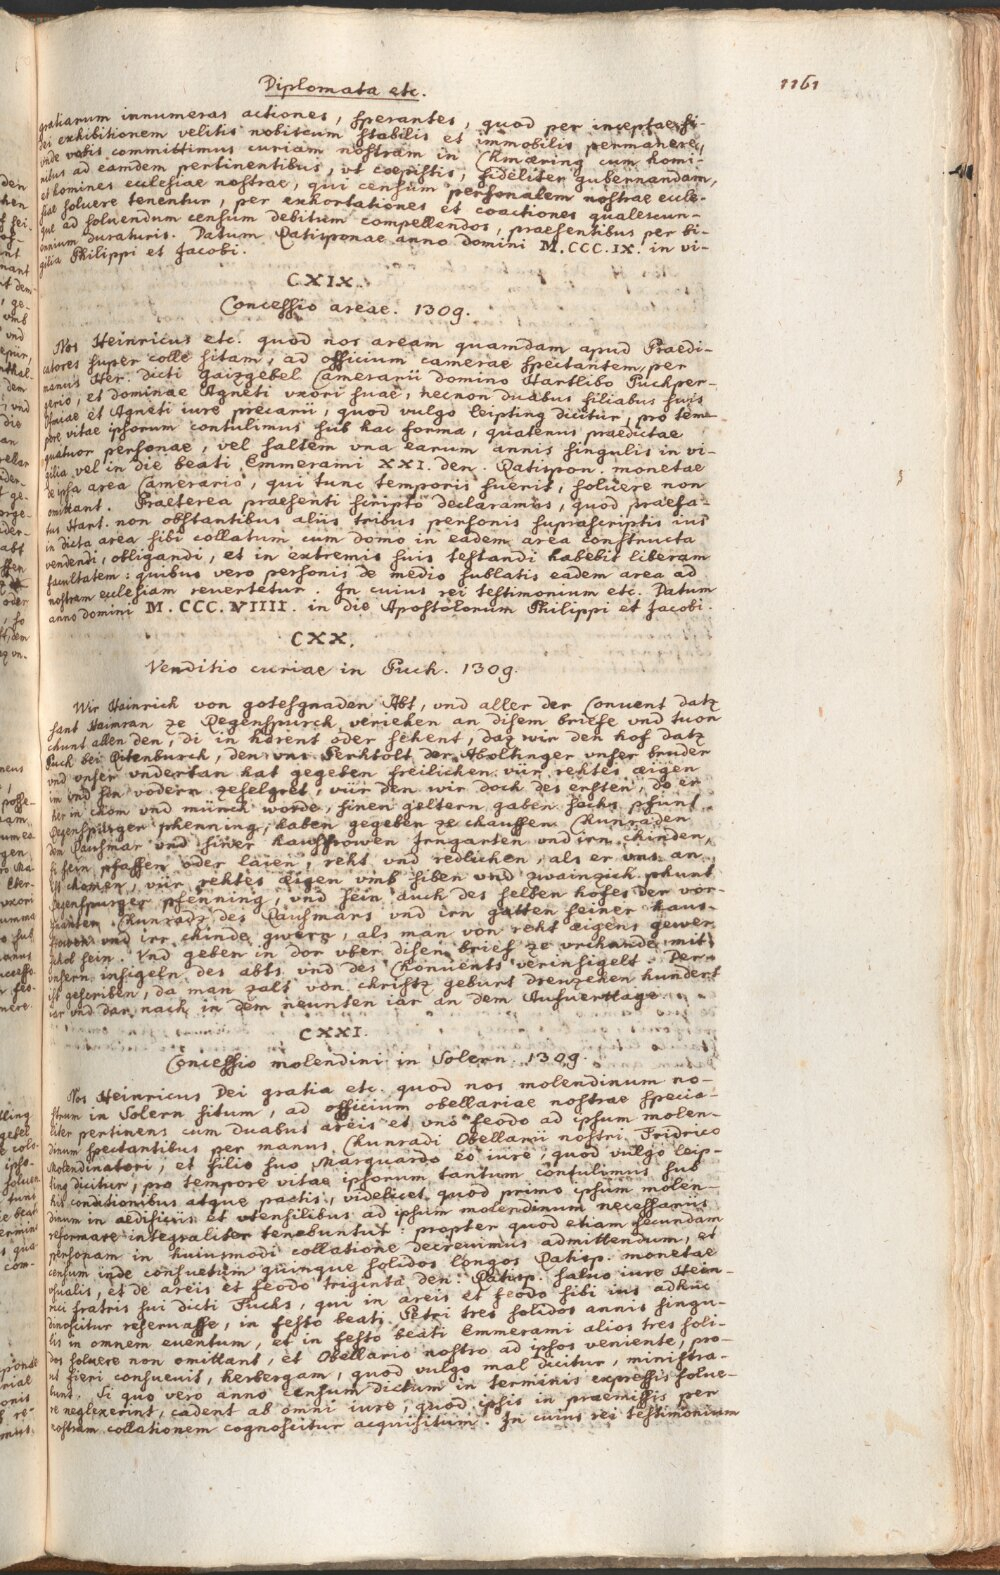 Diplomata etc.
1161
gratiarum innumeras actiones, sperantes, quod per inceptae fi-
dei exhibitionem velitis nobiscum stabilis et immobilis permanere,
vnde vobis committimus curiam nostram in Chmæring cum homi-
nibus ad eamdem pertinentibus, vt coepistis, fideliter gubernandam,
et homines ecclesiae nostrae, qui censum personalem nostrae eccle-
siae soluere tenentur, per exhortationes et coactiones qualescun-
que ad soluendum censum debitum compellendos, praesentibus per bi-
ennium duraturis. Datum Ratisponae anno domini M.CCC.IX. in vi-
gilia Philippi et Jacobi.
CXIX.
Concessio areae. 1309.
Nos Heinricus etc. quod nos aream quamdam apud Praedi-
catores super colle sitam, ad officium camerae spectantem, per
manus Her. dicti gaizgebel Camerarii domino Hartlibo Puchper-
gerio, et dominae Agneti vxori suae, necnon duabus filiabus suis
Osaiae et Agneti iure precarii, quod vulgo leipting dicitur, pro tem-
pore vitae ipsorum contulimus sub hac forma, quatenus praedictae
quatuor personae, vel saltem vna earum annis singulis in vi-
gilia vel in die beati Emmerami XXI. den. Ratispon. monetae
de ipsa area Camerario, qui tunc temporis fuerit, soluere non
omittant. Praeterea praesenti scripto declaramus, quod praefa-
tus Hart. non obstantibus aliis tribus personis suprascriptis ius
in dicta area sibi collatum cum domo in eadem area constructa
vendendi, obligandi, et in extremis suis testandi habebit liberam
facultatem: quibus vero personis de medio sublatis eadem area ad
nostram ecclesiam reuertetur. In cuius rei testimonium etc. Datum
anno domini M.CCC.VIIII. in die Apostolorum Philippi et Jacobi.
CXX.
Venditio curiae in Puch. 1309.
Wir Hainrich von gotesgnaden Abt, vnd aller der Conuent datz
sant Haimran ze Regenspurch veriehen an disem briefe vnd tuon
chunt allen den, di in hörent oder sehent, daz wir den hof datz
Puch bei Ritenburch, den vns Perhtolt der Aholtinger vnser bruder
vnd vnser vndertan hat gegeben freilichen vür rehtes æigen
im vnd sin vodern geselgret, vür den wir doch des ersten, do er
her in chom vnd münch worde, sinen geltern gaben sechs phunt
Regenspurger phenning, haben gegeben ze chauffen Chunraden
den Caufmar vnd siner hausfrowen Irngarten vnd irn chinden,
si sein pfaffen oder laien, reht vnd redlichen, als er vns an
ist chomen, vür rehtes æigen vmb siben vnd zwainzich phunt
Regenspurger pfenning, vnd sein auch des selben hofes der vor-
genanten Chunradz des Caufmars vnd irn gatten seiner haus-
frowen vnd irr chinde gwern, als man von reht æigens gewer
schol sein. Vnd geben in dor vber disen brief ze vrchunde mit
vnsern insigeln des abts vnd des Conuents verinsigelt. Der
ist geschriben, da man zalt von christz geburt dreuzehen hundert
iar vnd dar nach in dem neunten iar an dem Aufuerttage.
CXXI.
Concessio molendini in Solern. 1309.
Nos Heinricus Dei gratia etc. quod nos molendinum no-
strum in Solern situm, ad officium obellariae nostrae specia-
liter pertinens cum duabus areis et vno feodo ad ipsum molen-
dinum spectantibus per manus Chunradi Obellarii nostri Fridrico
Molendinatori, et filio suo Marquardo eo iure, quod vulgo leip-
ting dicitur, pro tempore vitae ipsorum tantum contulimus sub
his conditionibus atque pactis, videlicet quod primo ipsum molen-
dinum in aedificiis et vtensilibus ad ipsum molendinum necessariis
reformare integraliter tenebuntur: propter quod etiam secundam
personam in huiusmodi collatione decreuimus admittendum, et
censum inde consuetum quinque solidos longos Ratisp. monetae
vsualis, et de areis et feodo triginta den. Ratisp. saluo iure Hein-
rici fratris sui dicti Fuchs, qui in areis et feodo sibi ius adhuc
dinoscitur reseruasse, in festo beati Petri tres solidos annis singu-
lis in omnem euentum, et in festo beati Emmerami alios tres soli-
dos soluere non omittant, et Obellario nostro ad ipsos veniente, pro-
ut fieri consueuit, herbergam, quod vulgo mal dicitur, ministra-
bunt. Si quo vero anno censum dictum in terminis expressis solue-
re neglexerint, cadent ab omni iure, quod ipsis in praemissis per
nostram collationem cognoscitur acquisitum. In cuius rei testimonium